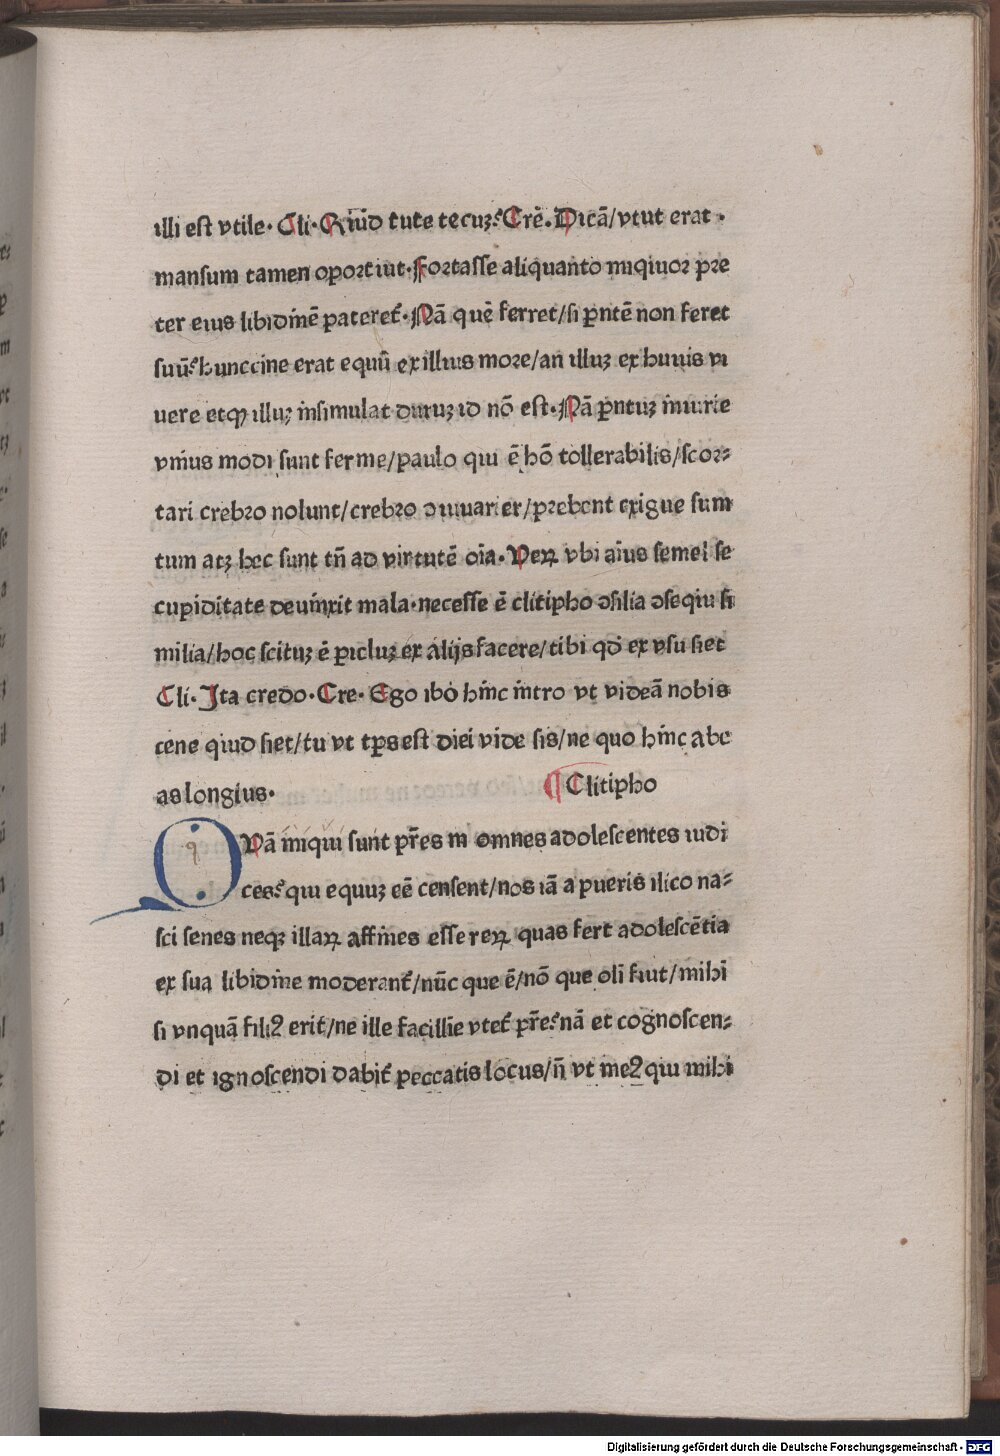 illi est vtile· Cli· Quid tute tecuꝫ? Crē. Dicā/vtut erat·
mansum tamen oportiut·Fortasse aliquanto iniqiuor pre
ter eius libidinē pateret᷑·Nā quē ferret/si pn̄tē non feret
suū?hunccine erat equū ex illius more/an illuꝫ ex huuis vi
uere etqꝫ illuꝫ insimulat duruꝫ id nō est·Nā pn̄tuꝫ iniurie
vnius modi sunt ferme/paulo qui ē hō tollerabilis/scor⸗
tari crebro nolunt/crebro ↄuiuarier/prebent exigue sum
tum atꝫ hec sunt tn̄ ad virtutē oīa·Veꝝ vbi aīus semel se
cupiditate deuinxit mala·necesse ē clitipho ↄsilia ↄseqiu si
milia/hoc scituꝫ ē ꝑicluꝫ ex alijs facere/tibi qd̄ ex vsu siet
Cli· Ita credo· Cre· Ego ibo hinc intro vt videā nobis
cene qiud siet/tu vt tp̄s est diei vide sis/ne quo hinc abe
as longius·
¶ Clitipho
q
QVā iniqiu sunt pr̄es in omnes adolescentes iudi
ces?qiu equuꝫ eē censent/nos iā a pueris ilico na⸗
sci senes neqꝫ illaꝝ affines esse reꝝ quas fert adolescētia
ex sua libidine moderant᷑/nūc que ē/nō que olī fiut/mihi
si vnquā fili9 erit/ne ille facillīe vtet᷑ pr̄e?nā et cognoscen⸗
di et ignoscendi dabit᷑ peccatis locus/n̄ vt me9 qiu mihi
Digitalisierung gefördert durch die Deutsche Forschungsgemeinschaft · DFG